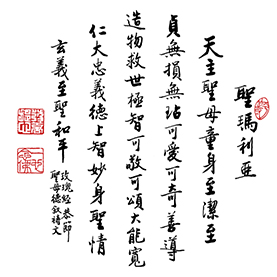 聖瑪利亞
天主聖母童身至潔至
貞無損無玷可愛可奇善導
造物救世極智可敬可頌大能寬
仁大忠義德上智妙身聖情
玄義至聖和平
玫瑰經恭節
聖母德敘禱文